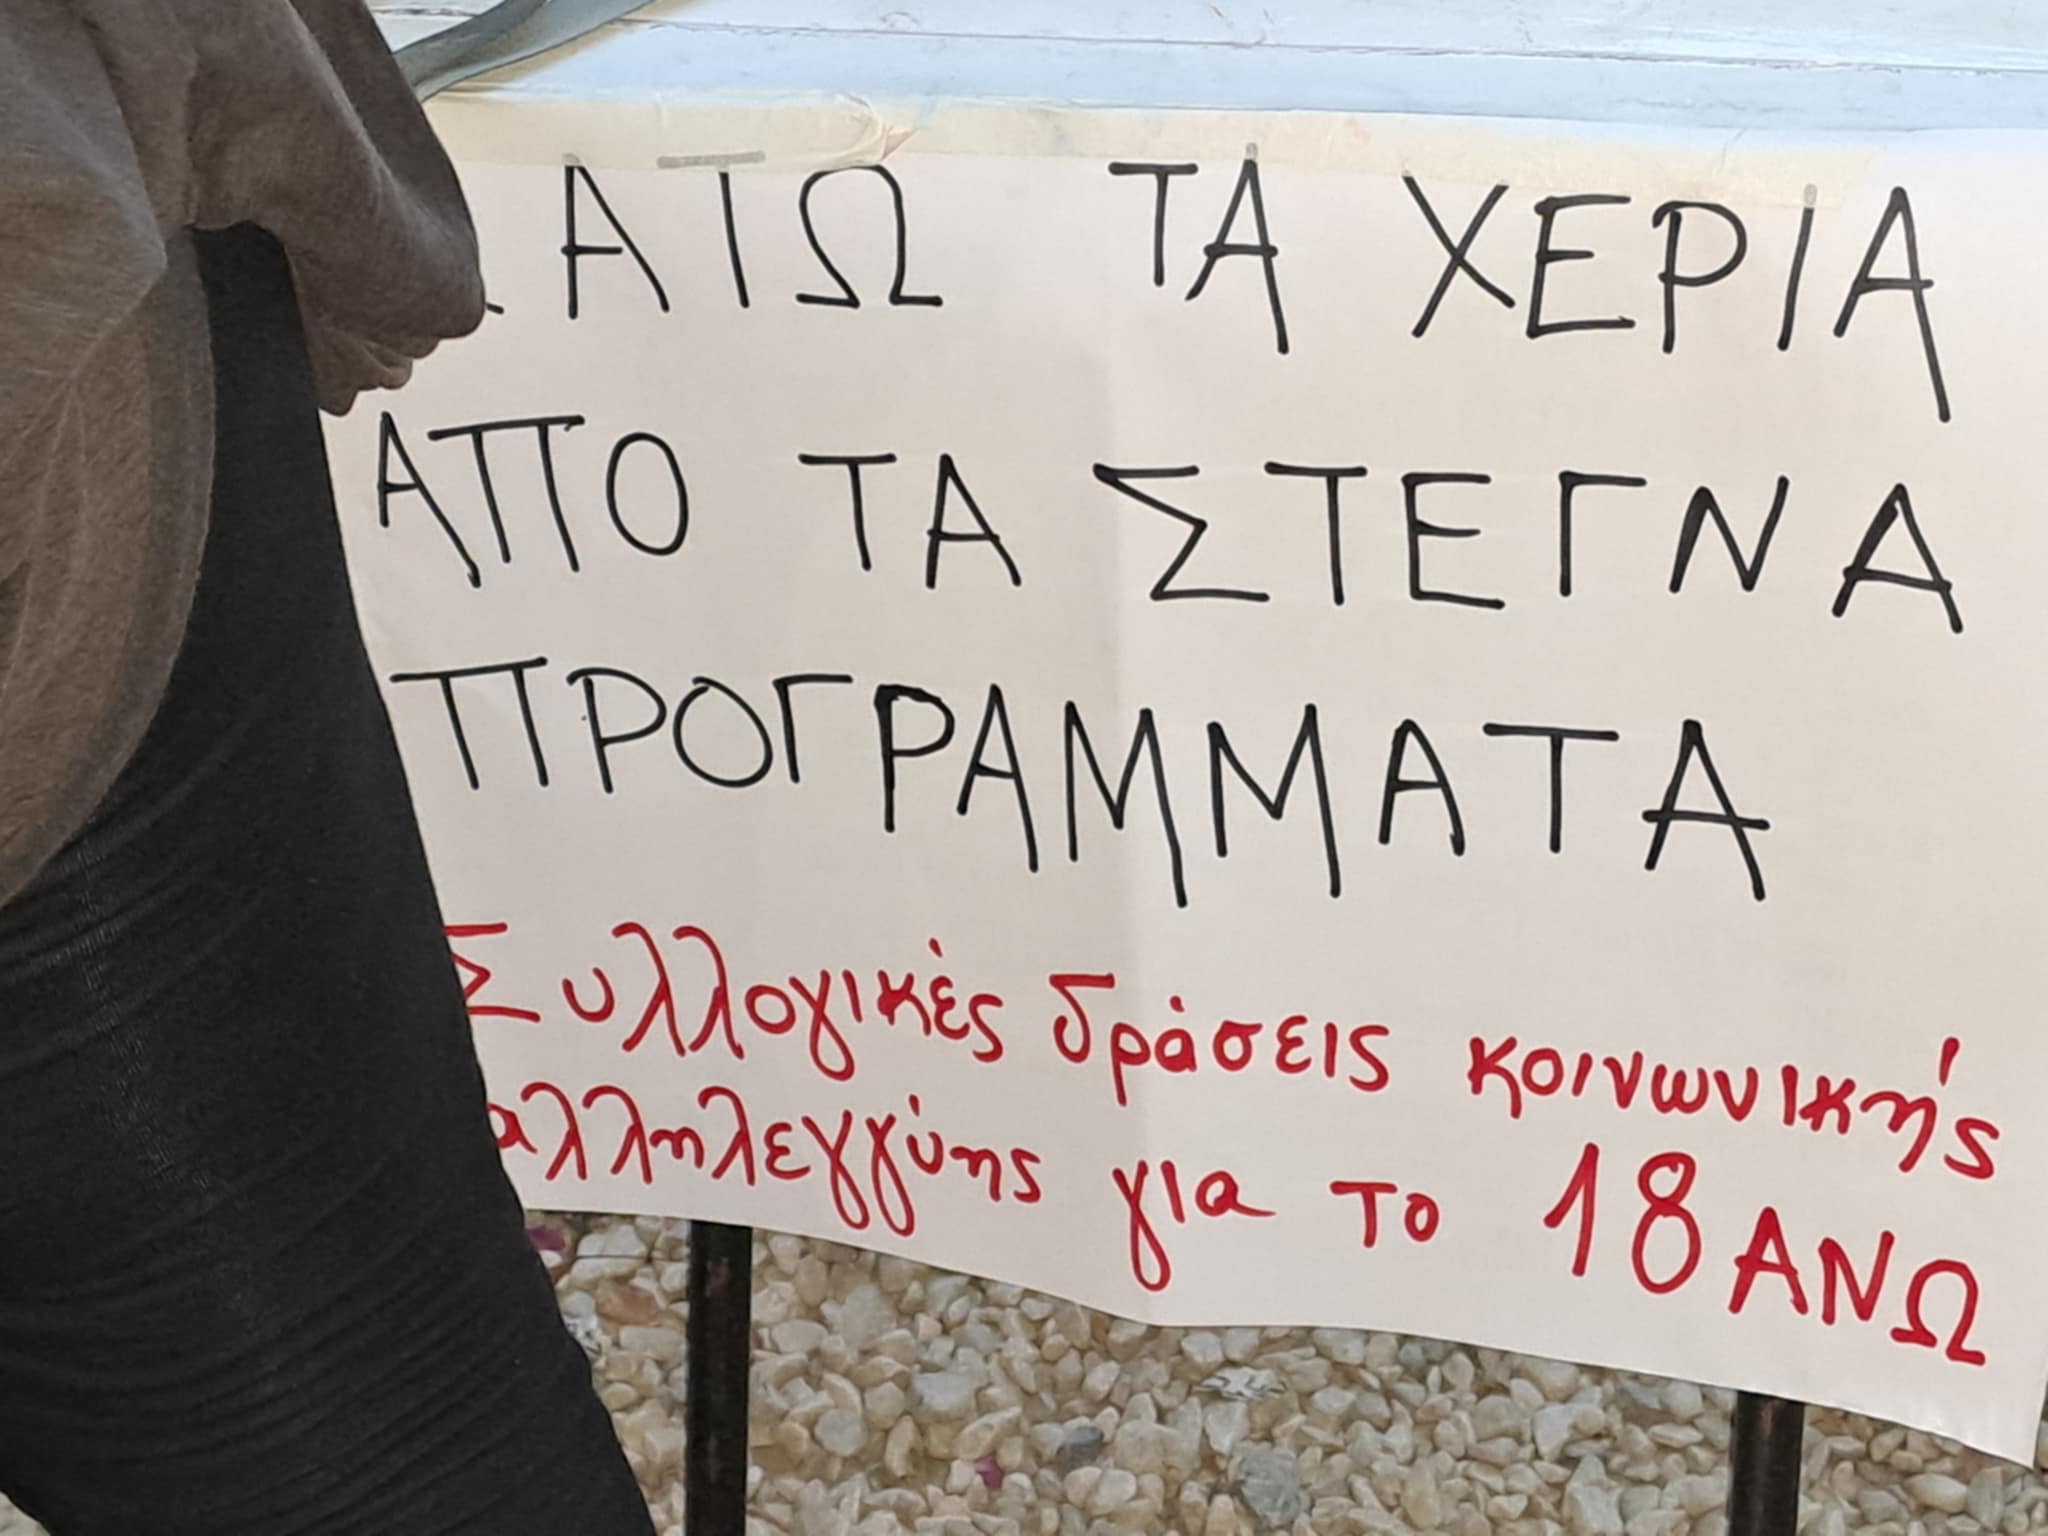 ΚΑΤΩ ΤΑ ΧΕΡΙΑ
ΑΠΟ ΤΑ ΣΤΕΓΝΑ
ΠΡΟΓΡΑΜΜΑΤΑ
Συλλογικές δράσεις κοινωνικής
αλληλεγγύης για το 18 ΑΝΩ